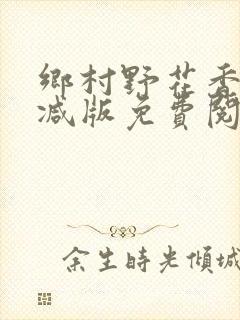 鄉村野花香
减版免費閱
余生時光傾城